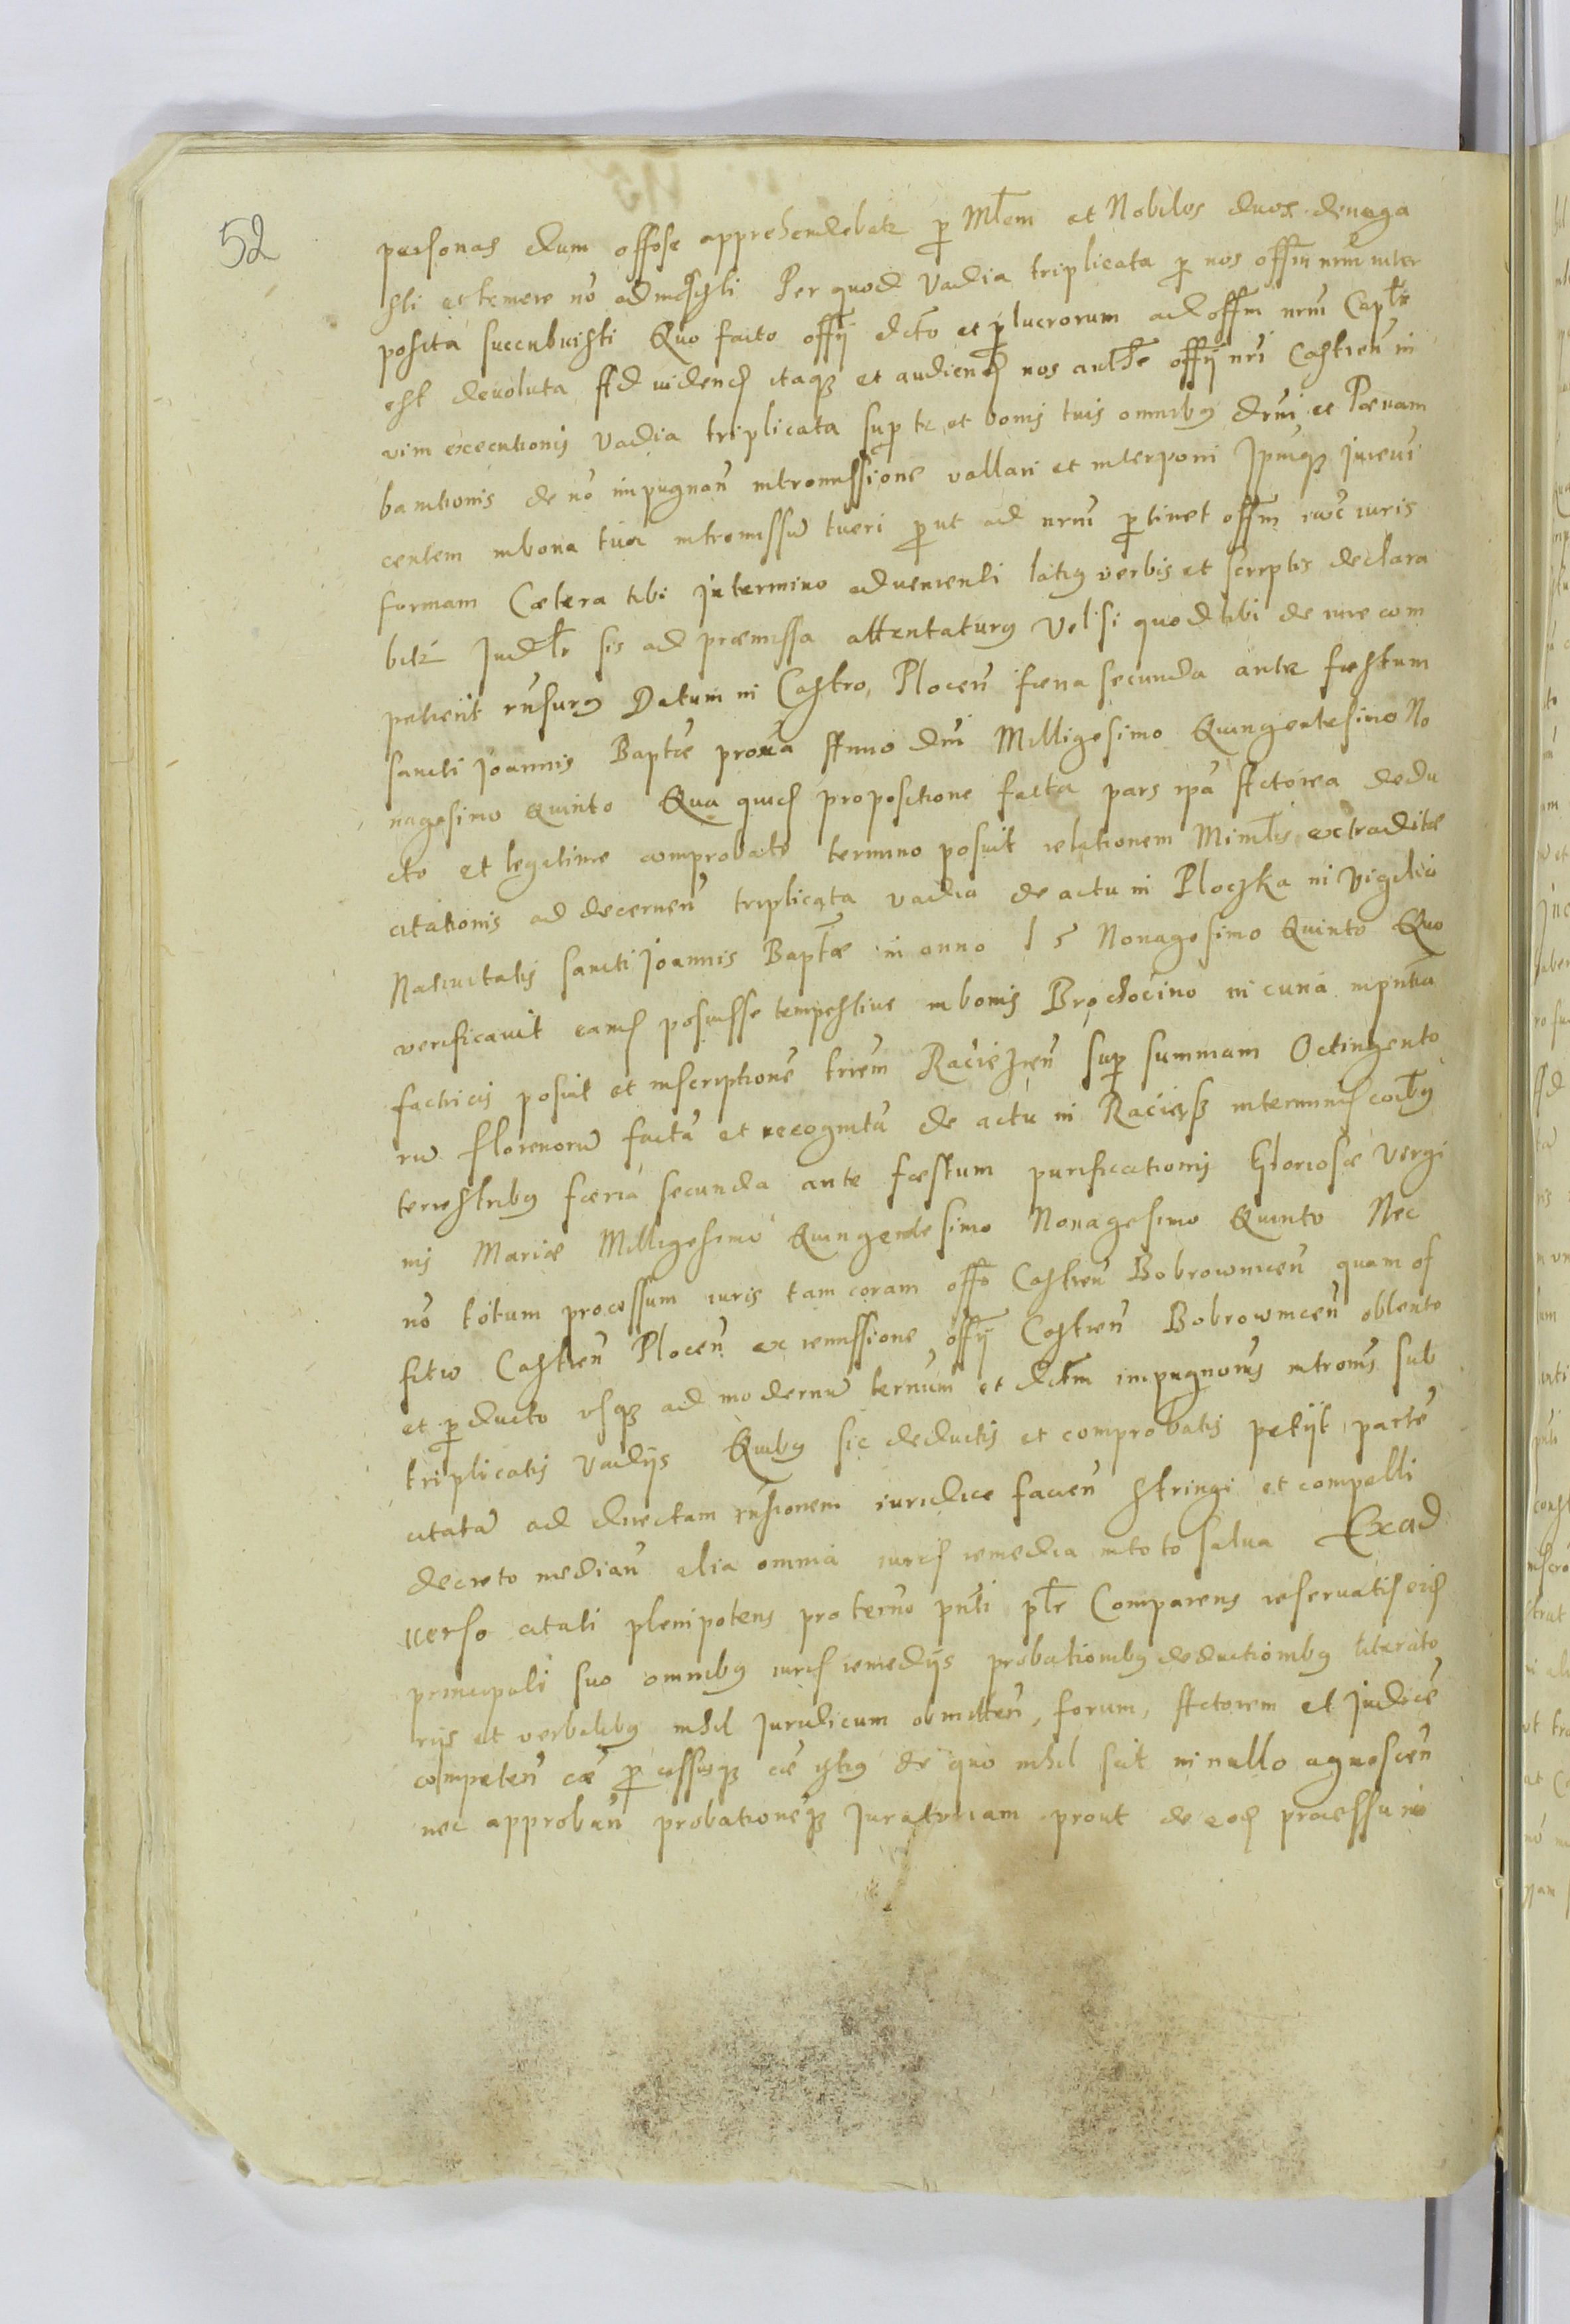 52
personas dum offose apprehendebatr p Mlem et Nobiles duos denega
sti et temere nō admisisti Per quod Vadia triplicata p nos offm nrm inter
posita succubuisti Quo facto offij dcto et p lucrorum ad offm nrm Captr
est devoluta Ad videnđ itaqz et audienđ nos authe offij nri Castren in
vim executionis Vadia triplicata sup te et bonis tuis omnibg drni et Pœnam
bannionis de nō impugnan intromissione vallari et interponi Ipmqz
centem in bona tua intromissū tueri p ut ad nrm ptinet offm iuris
formam Cætera tibi in termino advenienti latig verbis et scriptis declara
btr Judlr sis ad præmissa attentaturg Vel si quod tibi de iure com
petierit rnsurg Datum in Castro Plocen fœria secunda ante fœstum
sancti Joannis Baptæ proxa Anno dni Milligesimo Quingentesimo No
nagesimo Quinto Qua quidē propositione facta pars ipa Actorea dedu
cto et legitime comprobato termino posuit relationem Minlis extraditæ
citationis ad decernen triplicata vadia de actu in Ploczka in Vigilia
Nativitatis sancti Joannis Baptæ in anno 15 Nonagesimo Quinto Quo
verificavit eand posuisse tempestive in bonis Brochocino in curia inpntia
factricis posuit et inscriptionē trrem Raciezen sup summam Octingento
rū florenorū factā et recognitā de actu in Raciąsz in terminis coibg
terrestribg fœria secunda ante fœstum purificationis Gloriosæ Virgi
nis Mariæ Milligesimo Quingentesimo Nonagesimo Quinto Nec
nō totum processum iuris tam coram offo Castren Bobrownicen quam of
fitio Castren Plocen ex remissione offij Castren Bobrownicen obtento
et pducto vsqz ad modernū ternum et dictm impugnonis intromis sub
triplicatis Vadijs Quibg sic deductis et comprobatis petijt partē
citatā ad directam rnsionem iuridice facien stringi et compelli
decreto median alia omnia iuris remedia in toto salva Ex ad
verso citati plenipotens pro terno pnti ptr Comparens reservatis eid
principali suo omnibg iuris remedijs probationibg deductionibg literato
rijs et verbalibg nihil Juridicum obmitten, forum, Actorem et Judicē
competen cæ p cessusqz cæ istig de quo nihil scit in nullo agnoscen
nec approban probationēqz Juratoriam prout de eod processu